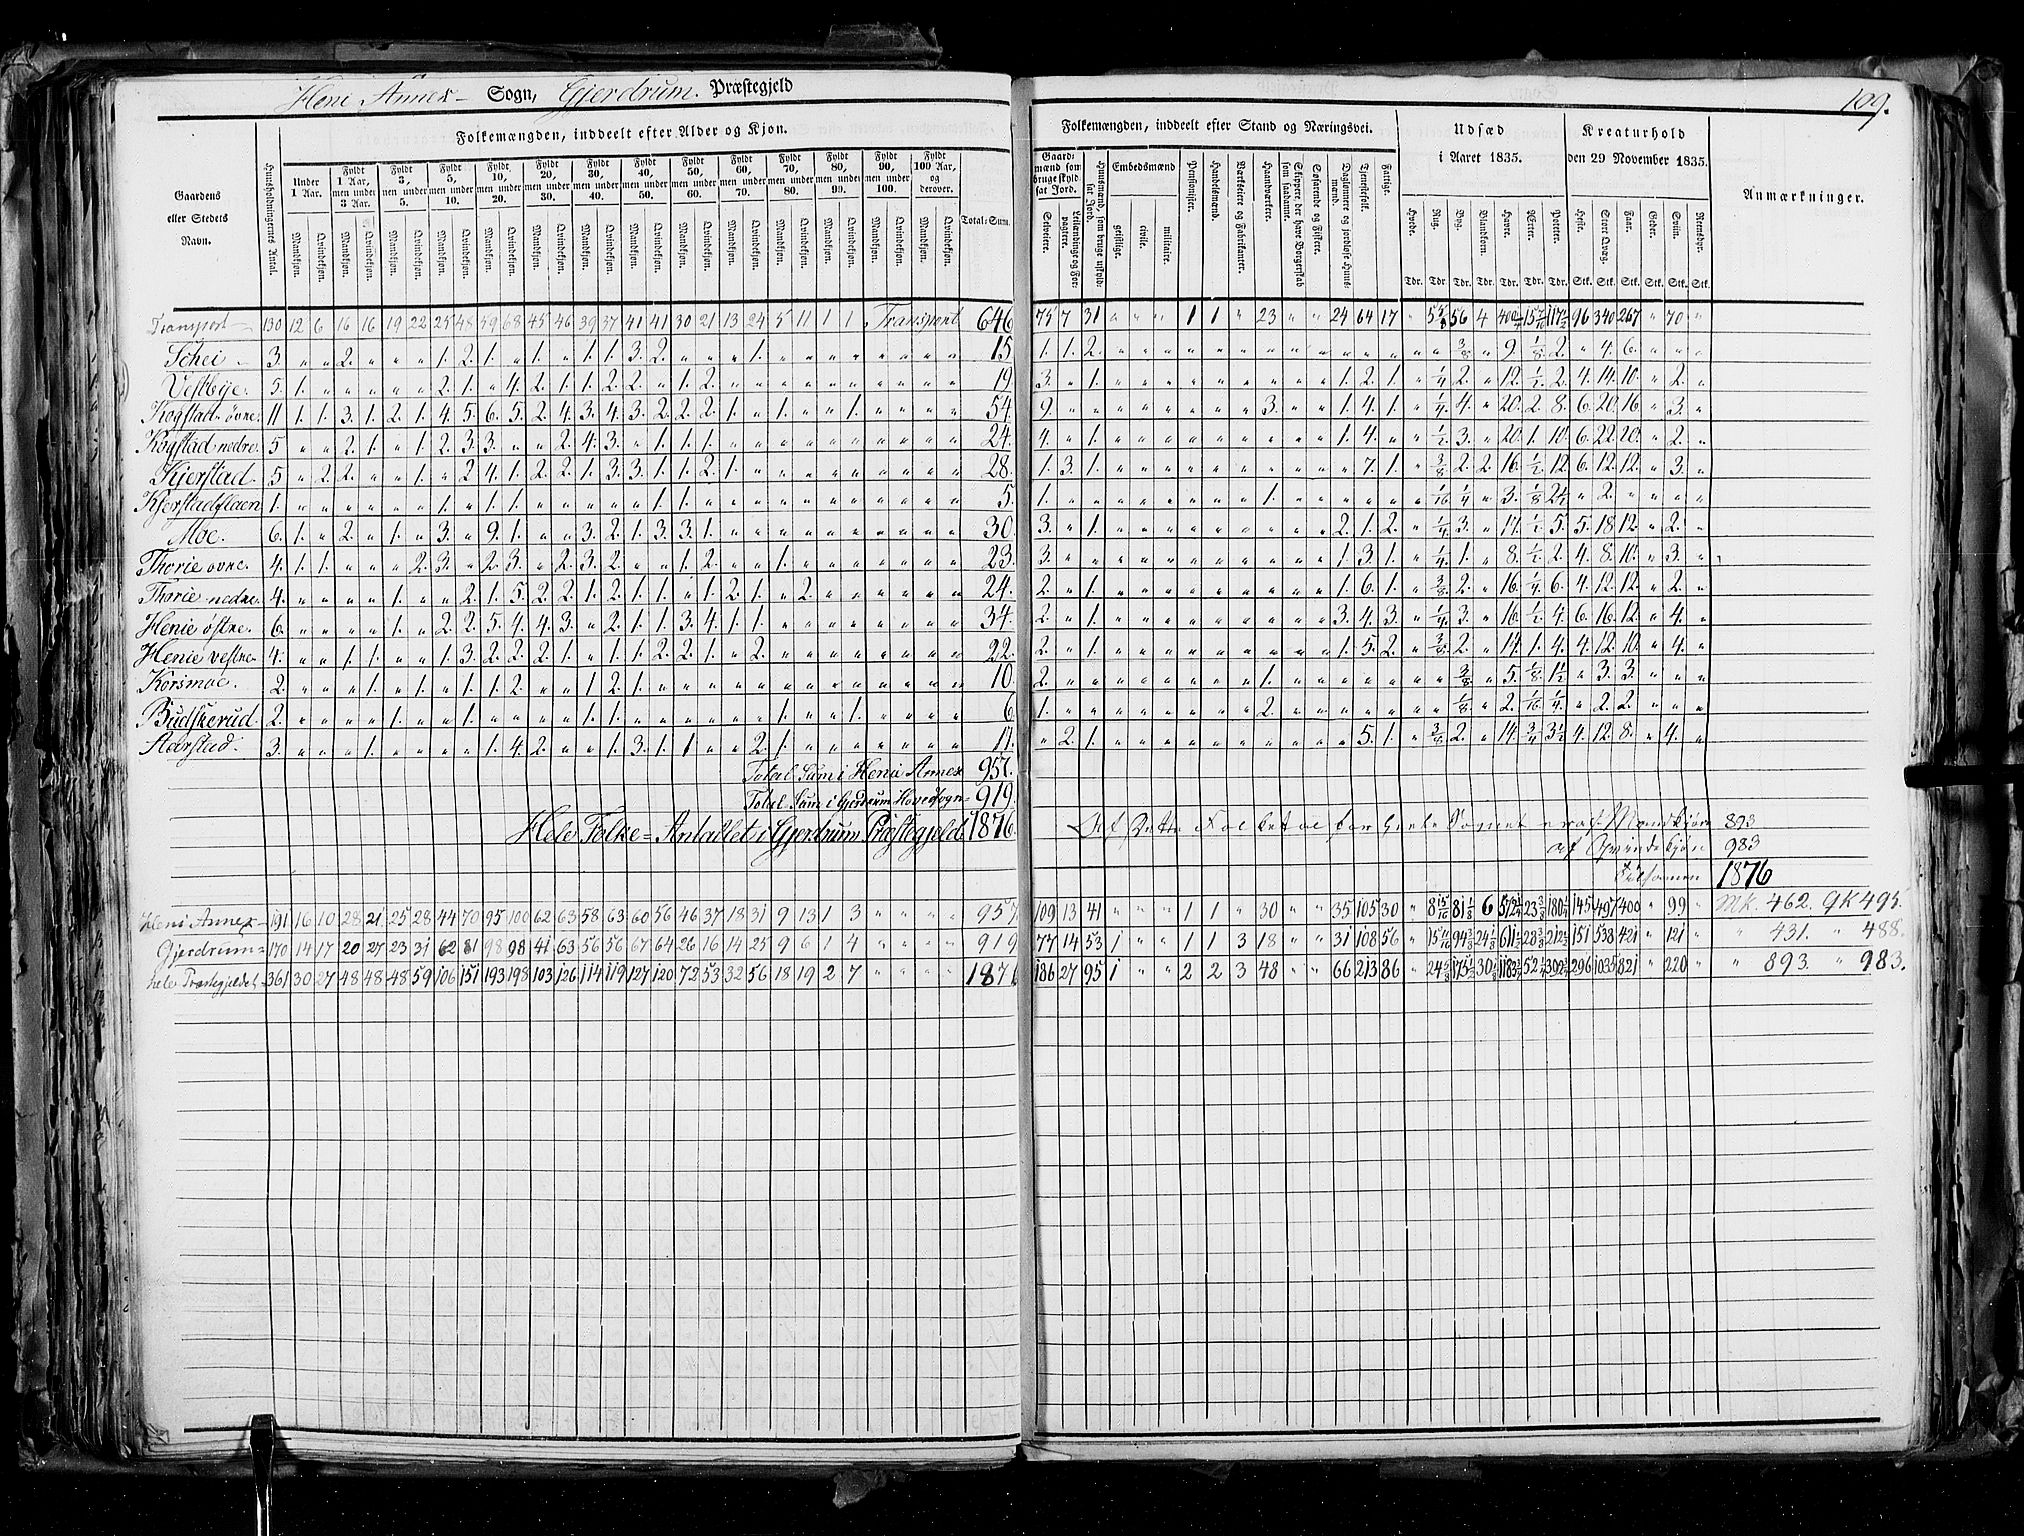 Heni Annex Sogn, Gjerdrum Præstegjeld
199.
Folkemængden, inddeelt efter Alder og Kjøn.
Folkemængden, inddeelt efter Stand og Næringsvei.
Udsæd i Aaret 1835.
Kreaturhold den 29 November 1835.
Anmærkninger.
Gaardens eller Stedets Navn.
Huusholdningernes Antal.
Under 1 Aar.
Fyldt 1 Aar, men under 3 Aar.
Fyldt 3, men under 5.
Fyldt 5, men under 10.
Fyldt 10, men under 20.
Fyldt 20, men under 30.
Fyldt 30, men under 40.
Fyldt 40, men under 50.
Fyldt 50, men under 60.
Fyldt 60, men under 70.
Fyldt 70, men under 80.
Fyldt 80, men under 90.
Fyldt 90, men under 100.
Fyldt 100 Aar, og derover.
Mandkjøn. Qvindekjøn.
Total-Sum.
Gaardmænd som bruge skyldsat Jord.
Selveiere.
Leilændinge og Forpagtere.
Huusmænd, som bruge uskyldsat Jord.
Embedsmænd
geistlige.
civile.
militaire.
Pensionister.
Handelsmænd.
Værkseiere og Fabrikanter.
Haandværkere.
Skippere, der have Borgerskab som saadanne.
Søfarende og Fiskere.
Dagleiere og jordløse Huusmænd.
Tjenestefolk.
Fattige.
Hvede. Rug. Byg. Blandkorn. Havre. Ærter. Poteter.
Heste. Stort Qvæg. Faar. Geder. Sviin. Reensdyr.
Tdr. Tdr. Tdr. Tdr. Tdr. Tdr. Tdr. Stk. Stk. Stk. Stk. Stk. Stk.
Transport 130 12 6 16 16 19 22 25 48 59 68 45 46 39 37 41 41 30 21 13 24 5 11 1 1 Transport 646 75 7 31 " " " 1 1 " 23 " " 24 64 17 " 56 4 96 340 267 " 70 "
Schei 3. " " 2. " " " 1. 2. 1. " 1. " 1. 1. 3. 2. 1. 15 1. 1. 2. 3/8 " 9. 1/8 2. " 4. 6.
Vestbye. 5. 1. 2. 1. " 4. 2. 1. 1. 2. 2. " 1. 2. 19. 3. " 1. 1. 2. 1. " 1/4 2. " 12. 1/2 2. 4. 14. 10. " 2. "
Kogstad øvre. 11. 1. 1. 3. 1. 2. 1. 4. 5. 6. 5. 2. 4. 3. 4. 3. 2. 2. 2. 1. " 1. " " 1. 54. 9. 3. " " 1. 4. 1. " 1/4 4. " 20. 2. 8. 6. 20. 16. " 3. "
Kogstad nedre. 5 " " 2. 1. " 1. 2. 3. 3. " " 2. 4. 3. " 1. 1. 1. 24. 4. " 1. 1. 4. " " 1/2 3. " 20. 1. 10. 6. 22. 20. " 2. "
Kjerstad. 5 " 2. 2. " " 1. " 2. 4. 1. 2. 2. 1. 3. 3. 1. 1. 2. 1. 28. 1. 3. 1. 7. 1. " 3/8 2. 2. 16. 1/2 12. 6. 12. 12. " 3. "
Kjerstadflaen 1. 1. " 1. 1. 1. 5. 1. 1. 1/16 1/4 " 3. 1/8 2 1/2 " 2.
Moe. 6. 1. " 2. " 1. " 3. " 9. 1. " " 3. 2. 1. 3. 3. 1. 30. 3. " 1. 2. 1. 2. " 1/4 3. " 17. 1/2 5. 5. 18. 12. " 2. "
Thorie øvre. 4. 1. 1. " " " 2. 3. " 2. 3. " 2. 3. 2. " " 1. 2. " " 1. 23. 3. 1. 3. 1. " 1/4 1. " 8. 1/2 2. 4. 8. 10. " 3. "
Thorie nedre. 4. " " " " 1. " " 2. 1. 5. 2. 2. 1. 2. 1. 1. " 1. 2. 1. " 2. 24. 2. " 1. 1. 6. 1. " 3/8 2. " 16. 1/4 6. 4. 12. 12. " 2. "
Henie østre. 6. " " " " 1. " 2. 2. 5. 4. 4. 3. " 2. 1. 1. 3. 4. 1. 1. 34. 2. " 1. 3. 4. 3. " 1/4 3. " 16. 1/2 4. 6. 16. 12. " 4. "
Henie vestre 4. " " 1. 1. " " 1. 3. 2. 2. 2. 1. " 1. 1. 2. 2. 1. " 2. 22. 2. " 1. 1. 5. 2. " 3/8 2. " 14. 1. 4. 4. 12. 10. " 4. "
Korsmoe. 2. " " " 1. " 1. " 1. 1. 2. " " 1. 2. 1. 10. 2. 1. 3/8 " 5. 1/8 1 1/2 " 3. 3.
Budskerud. 2. " " " " 1. " 1. 1. 1. 1. " " 1. 6. 1. 2. 1/8 " 2. 1/16 1/4 " 2. 2.
Aarstad. 3. " " " 1. " " " " 1. 4. 2. " " 1. 3. 1. 1 " " 2. 1. 17. " 2. 1. 5. 1. " 3/8 2. " 14. 3/4 3 1/2 4. 12. 8. " 4. "
Total Sum i Henie Annex 957.
Total Sum i Gjerdrum Hovedsogn 919.
Hele Folke-Antallet i Gjerdrum Præstegjeld 1876.
Af dette Folketal for hele Sognet er af Mandkjøn 893
af Qvindekjøn 983
Tilsammen 1876
Heni Annex 191 16 10 28 21 25 28 44 70 95 100 62 63 58 63 60 56 46 37 18 31 9 13 1 3 " " " " 957 109 13 41 " " " 1 1 " 30 " " 35 105 30 " 6 145 497 400 " 99 " MK. 462. QK 495.
Gjerdrum 170 14 17 20 27 23 31 62 81 98 98 41 63 56 56 67 64 26 16 14 25 9 6 1 4 " " " " 919 77 14 53 1 " " 1 1 3 18 " " 31 108 56 " 151 538 421 " 121 " " 431. " 488.
hele Præstegjeldet 361 30 27 48 48 48 59 106 151 193 198 103 126 114 119 127 120 72 53 32 56 18 19 2 7 " " " " 1876 186 27 95 1 " " 2 2 3 48 " " 66 213 86 " 296 1035 821 " 220 " " 893. " 983.